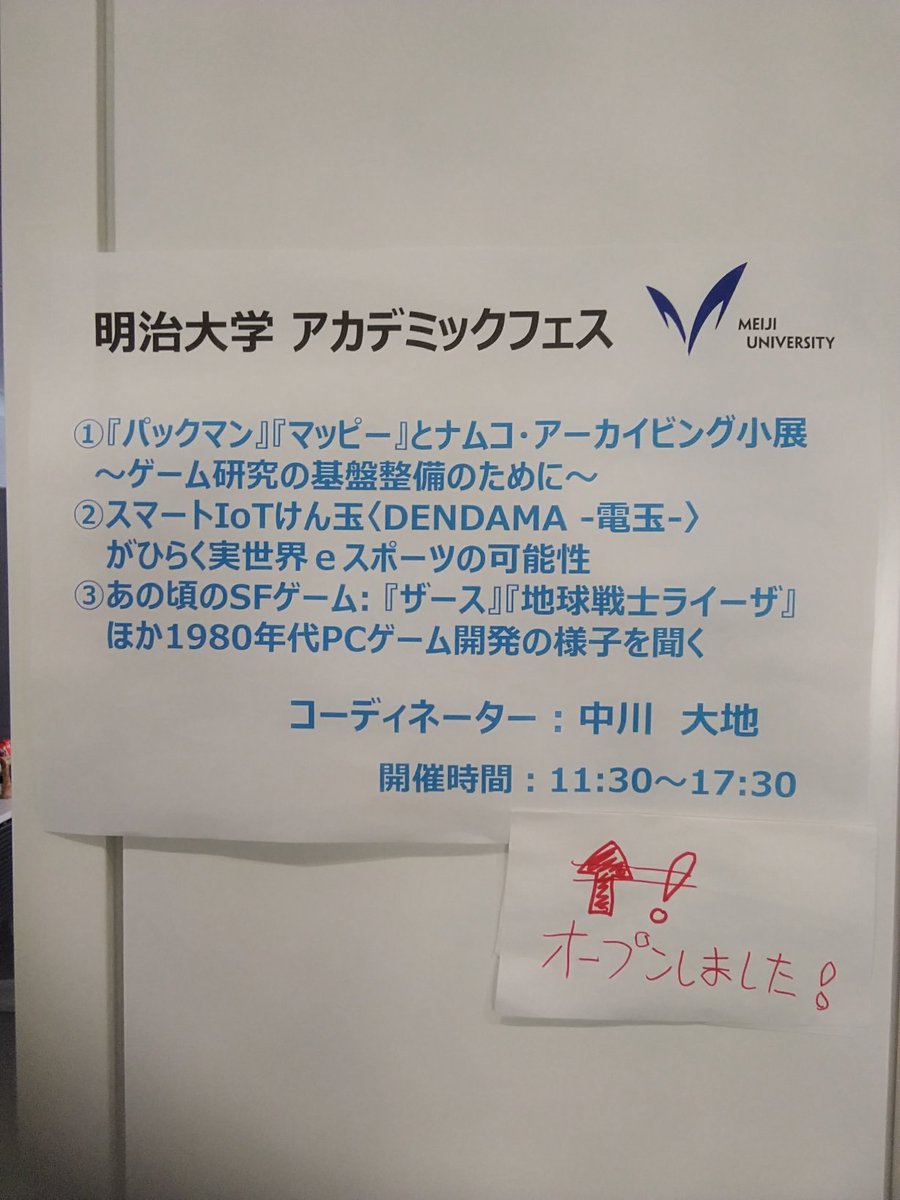 明治大学 アカデミックフェス
MEIJI
UNIVERSITY
①『パックマン』『マッピー』とナムコ・アーカイビング小展
～ゲーム研究の基盤整備のために～
②スマートIoTけん玉〈DENDAMA -電玉-〉
がひらく実世界ｅスポーツの可能性
③あの頃のSFゲーム:『ザース』『地球戦士ライーザ』
ほか1980年代PCゲーム開発の様子を聞く
コーディネーター：中川 大地
開催時間：11:30～17:30
オープンしました!